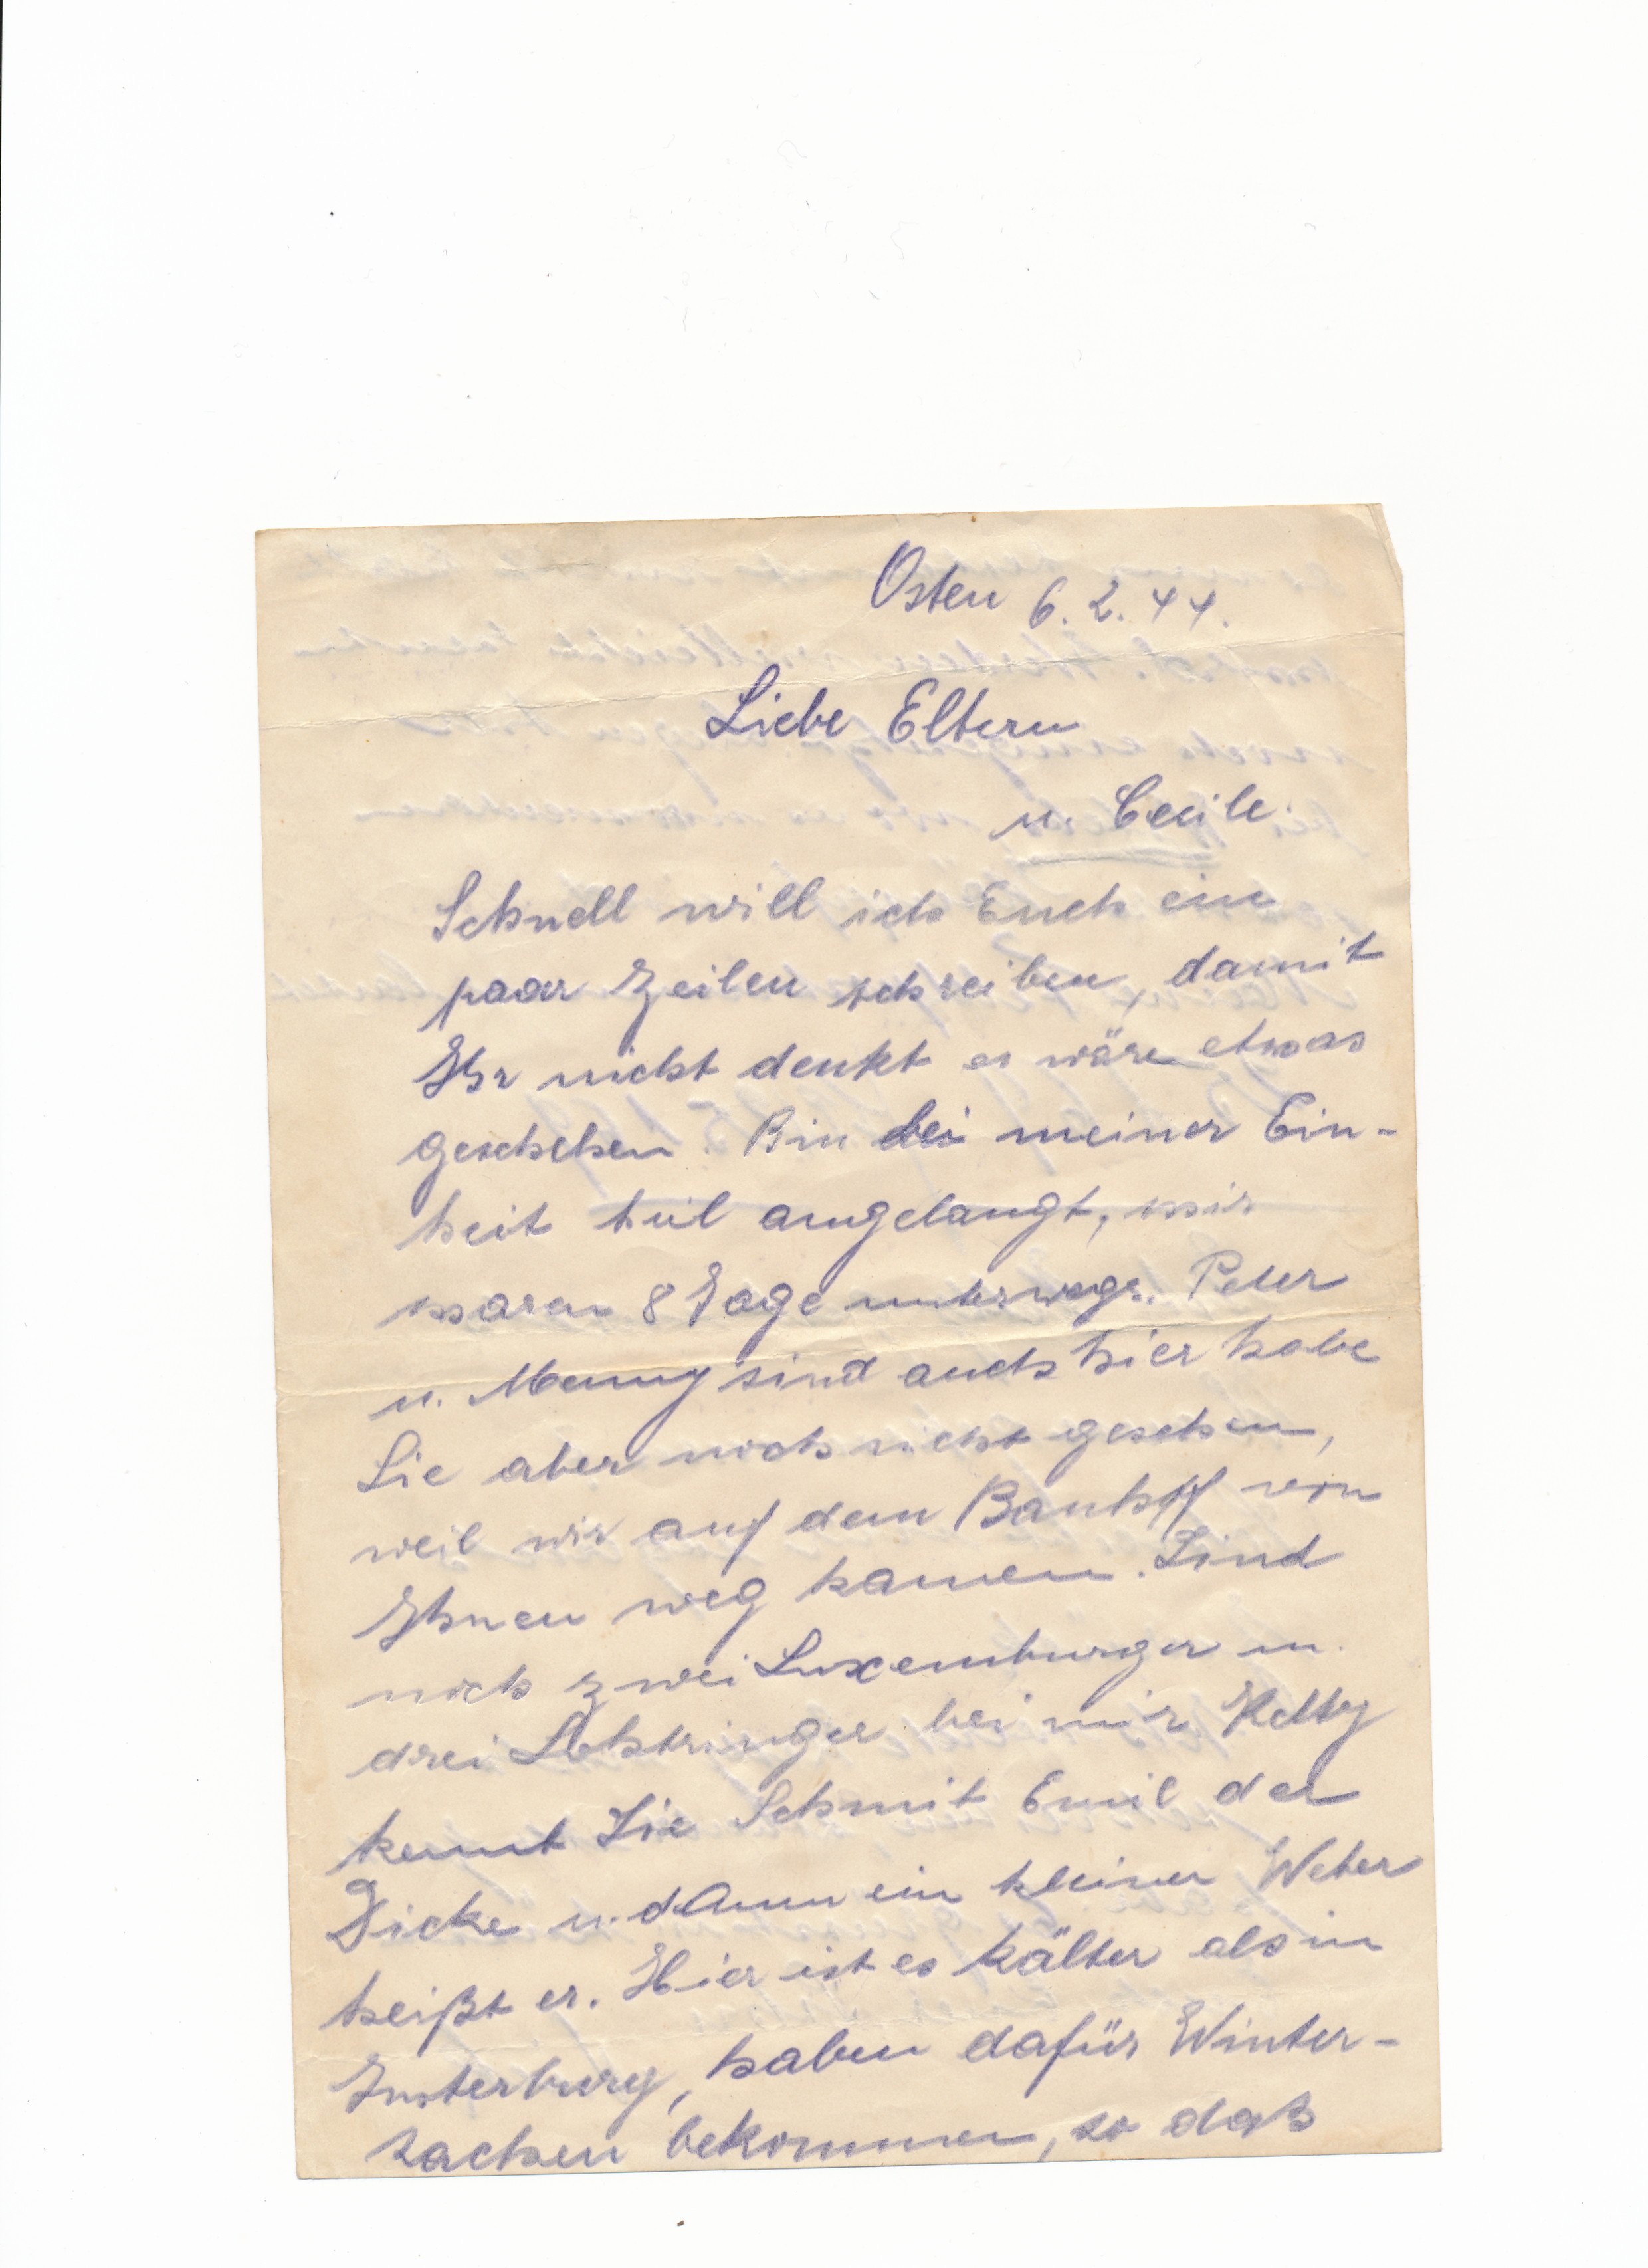 Osten 6.2.44.
Liebe Eltern
u. Cecile.
Schnell will ich Euch ein
paar Zeilen schreiben, damit
Ihr nicht denkt es wäre etwas
geschehen. Bin bei meiner Ein-
heit heil angelangt, wir
waren 8 Tage unterwegs. Peter
u. Menny sind auch hier habe
Sie aber noch nicht gesehen,
weil wir auf dem Banhof von
Ihnen weg kamen. Sind
noch zwei Luxemburger u.
drei Lothringer bei mir. Ketty
kennt Sie Schmit Emil der
Dicke u. dann ein kleiner Weber
heißt er. Hier ist es kälter als in
Insterburg, haben dafür Winter-
sachen bekommen, so daß